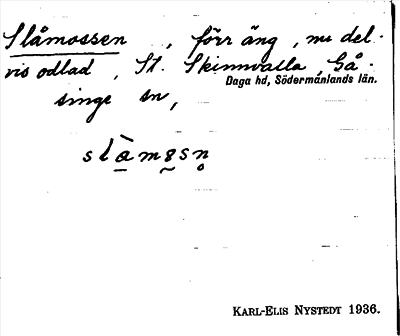 Slåmossen , förr äng , nu del-
vis odlad , St. Skinnvalla Gå-
Daga hd, Södermanlands län.
singe sn,
slàmɜsn̥
KARL-ELIS NYSTEDT 1936.